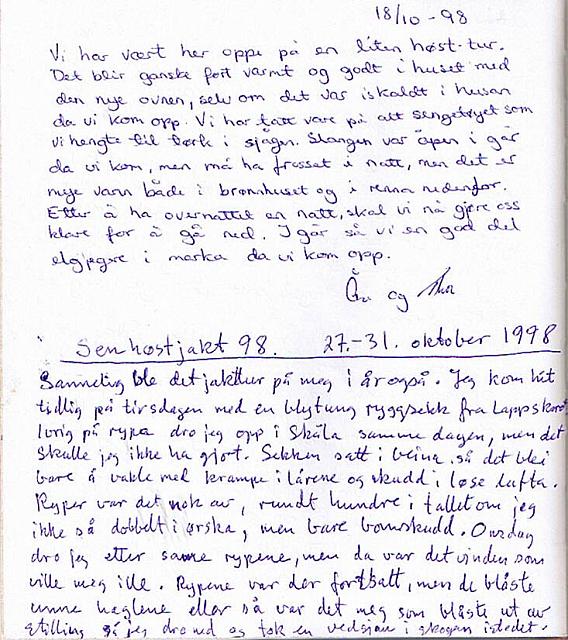 18/10-98
Vi har vært her oppe på en liten høst-tur.
Det blir ganske fort varmt og godt i huset med
den nye ovnen, selv om det var iskaldt i husan
da vi kom opp. Vi har tatt vare på alt sengetøyet som
vi hengte til tørk i sjågen. Slangen var åpen i går
da vi kom, men må ha frosset i natt, men det er
mye vann både i brønnhuset og i renna nedenfor.
Etter å ha overnattet en natt, skal vi nå gjøre oss
klare for å gå ned. I går så vi en god del
elgjegere i marka da vi kom opp.
og
Senhøstjakt 98. 27.-31. oktober 1998
Sannelig ble det jakttur på meg i år også. Jeg kom hit
tidlig på tirsdagen med en blytung ryggsekk fra Lappskard
Ivrig på rypa dro jeg opp i Skåla samme dagen, men det
skulle jeg ikke ha gjort. Sekken satt i beina så det blei
bare å vakle med krampe i lårene og skudd i løse lufta.
Ryper var det nok av, rundt hundre i tallet om jeg
ikke så dobbelt i ørska, men bare bomskudd. Onsdag
dro jeg etter samme rypene, men da var det vinden som
ville meg ille. Rypene var der fortsatt, men de blåste
unna haglene eller så var det meg som blåste ut av
stilling så jeg dro ned og tok en vedsjau i skogen istedet.